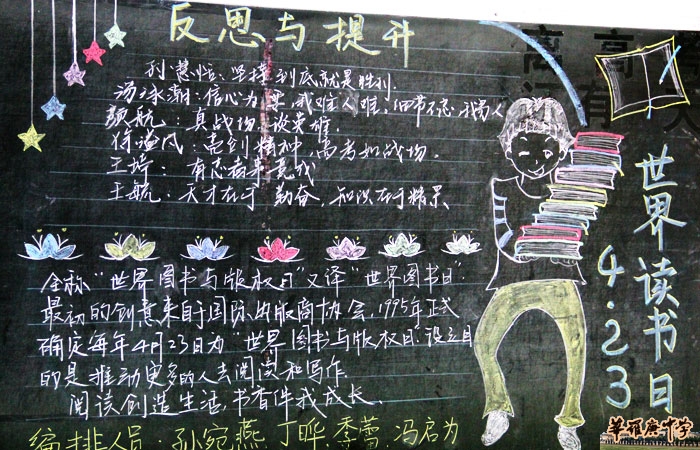 反思与提升
孙慧恬：坚持到底就是胜利.
汤冰潮：信心为
颜航：真战场 谈英雄.
精神，高考如战场.
王琦：有志者事竟成
王航：天才在于勤奋，知识在于积累.
全称“世界图书与版权日”又译“世界图书日”.
最初的创意来自于国际出版商协会，1995年正式
确定每年4月23日为“世界图书与版权日”设立目
的是推动更多的人去阅读和写作.
阅读创造生活，书香伴我成长.
编排人员：孙宛燕 丁晔 季蕾 冯启为
世界读书日
4.23
离 高 考
还 有 天
华罗庚中学